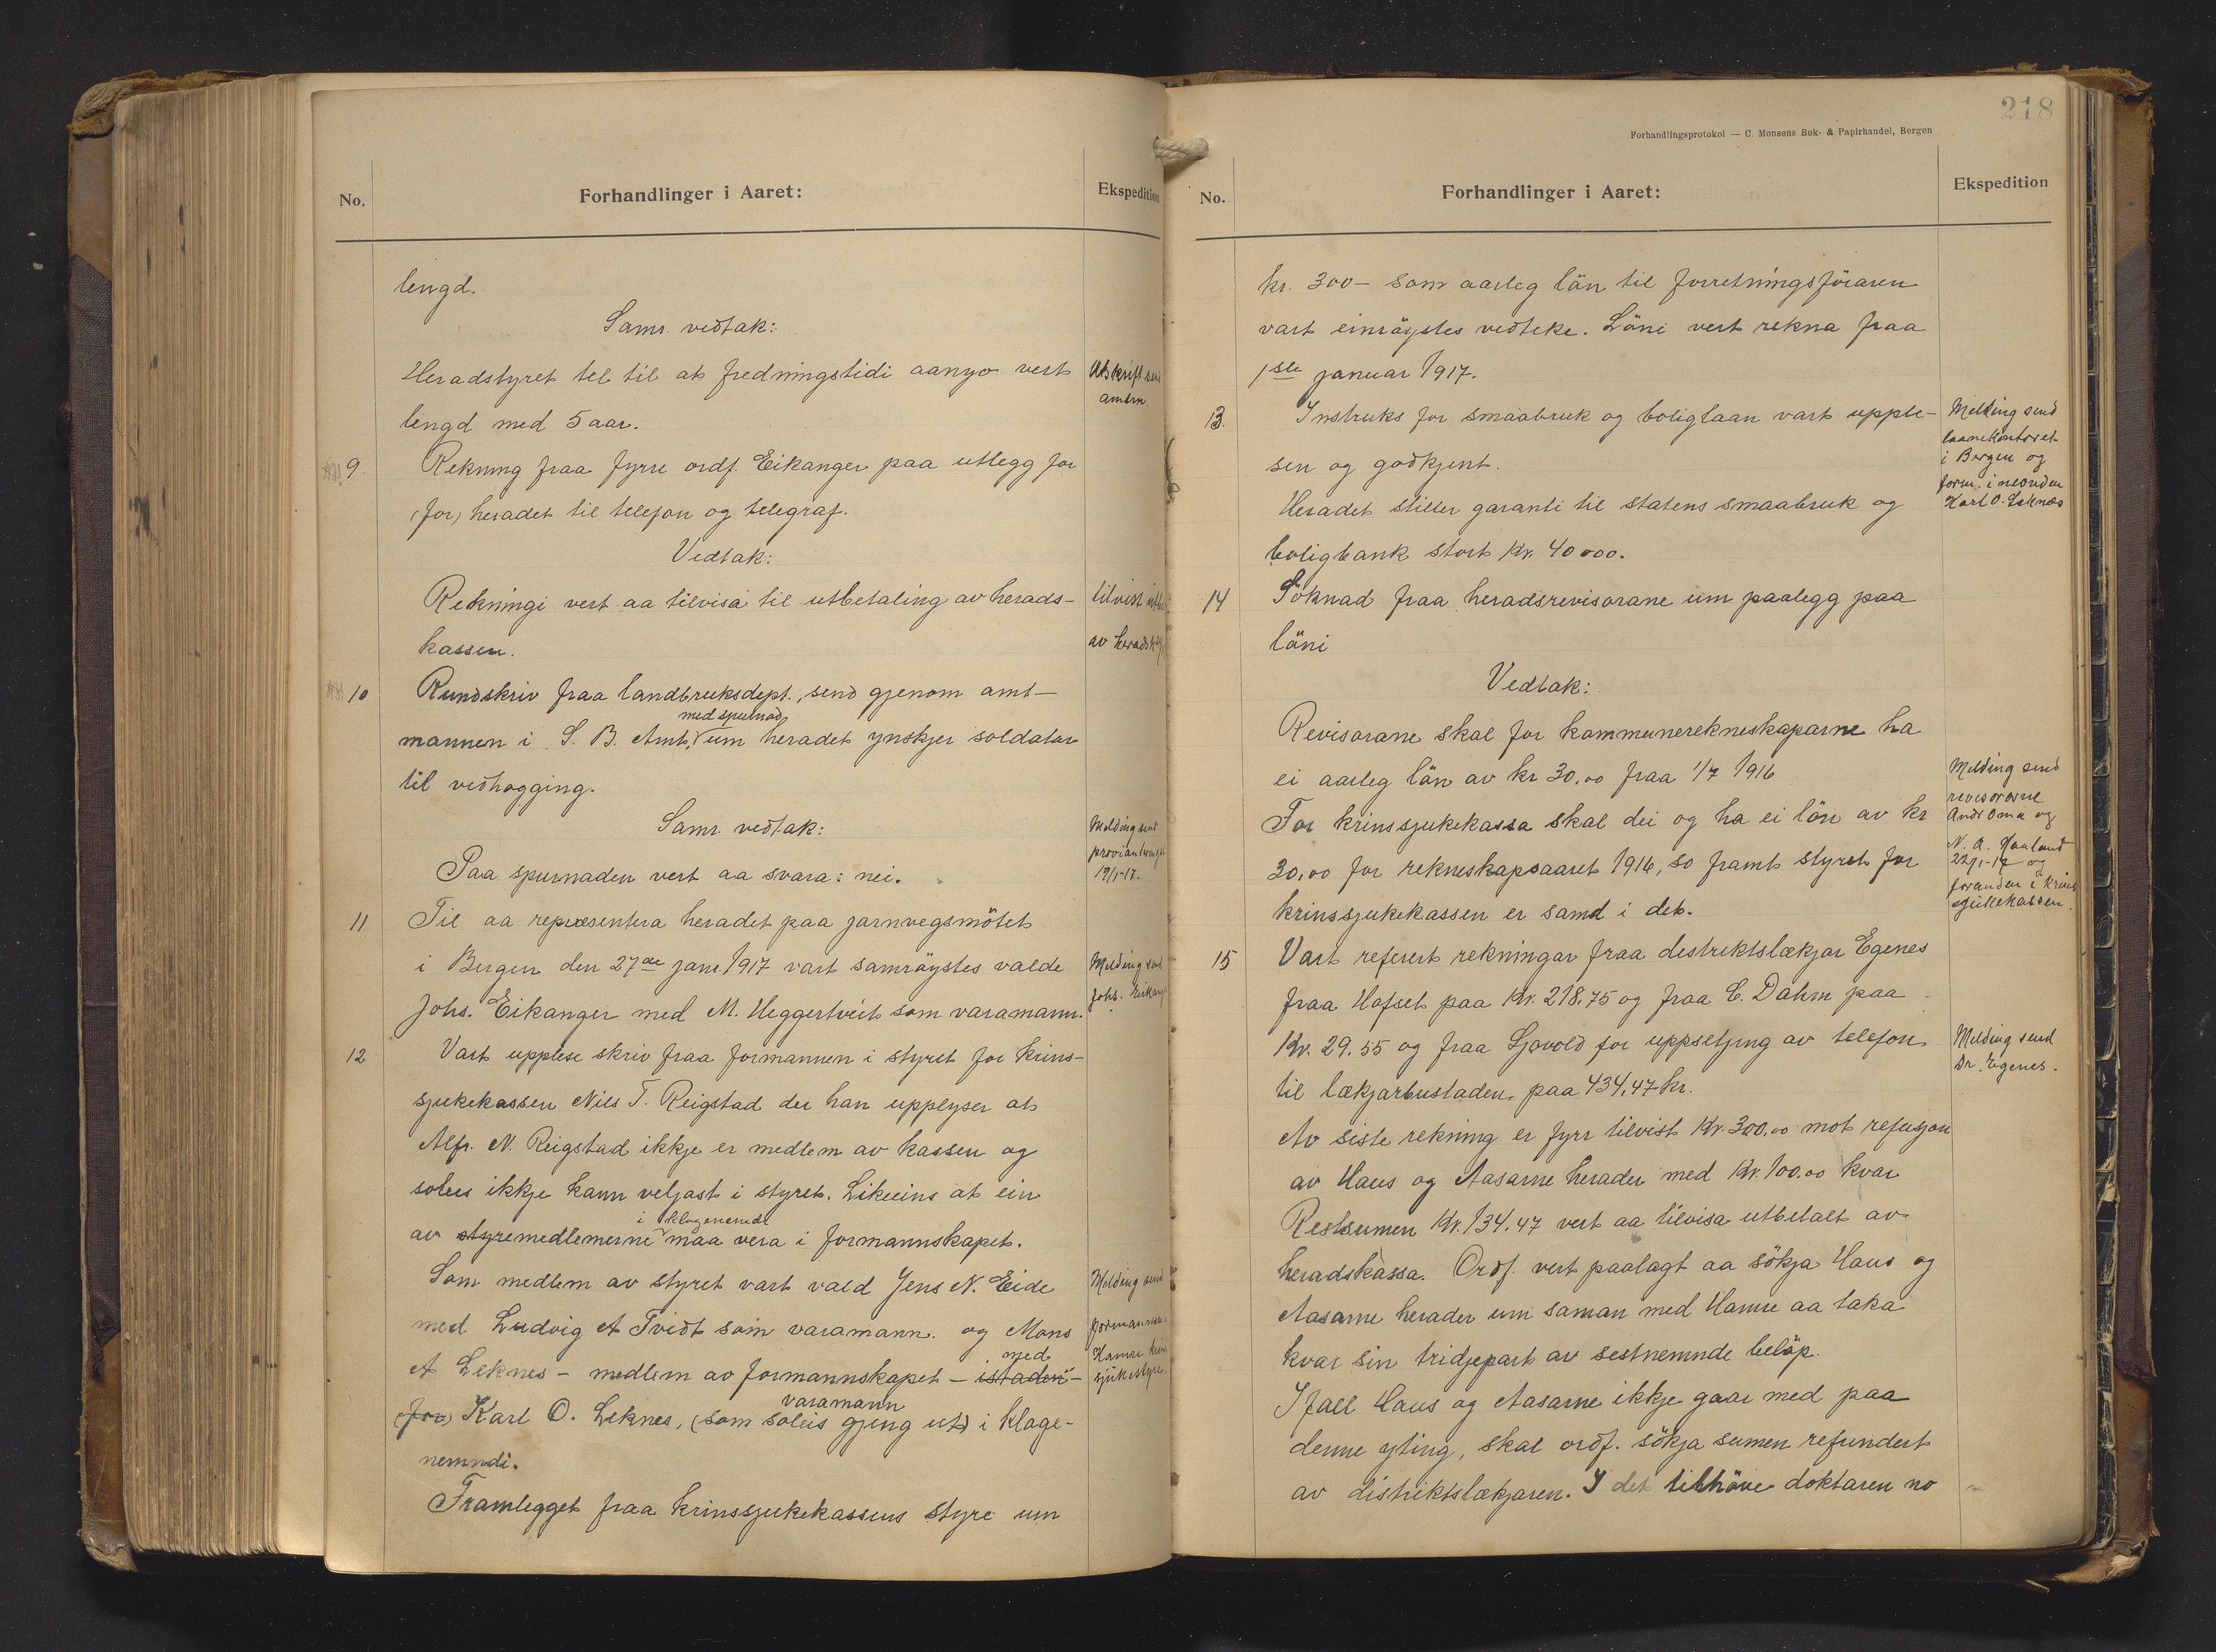 No.
Forhandlinger i Aaret:
Ekspedition
lengd.
Samr. vedtak:
Heradstyret tel til at fredningstidi aanyo vert
lengd med 5 aar.
Avskrift send
amtm.
9 Rekning fraa fyrre ordf. Eikanger paa utlegg for
(for) heradet til telefon og telegraf.
Vedtak:
Rekningi vert aa tilvisa til utbetaling av herads-
kassen.
tilvist
av heradsk
10 Rundskriv fraa landbruksdept., send gjenom amt-
med spurnad
mannen i S. B. Amt, um heradet ynskjer soldatar
til vedhogging.
Samr. vedtak:
Paa spurnaden vert aa svara: nei.
Melding send
proviantering
19/1-17.
11 Til aa repræsentera heradet paa jarnvegsmötet
i Bergen den 27de janr. 1917 vart samröystes valde
Johs. Eikanger med M. Heggertveit som varamann.
Melding send
Johs. Eikang
12 Vart upplese skriv fraa formannen i styret for krins-
sjukekassen Nils T. Reigstad der han upplyser at
Alfr. N. Reigstad ikkje er medlem av kassen og
soleis ikkje kann veljast i styret. Likeeins at ein
i klagenemndi
av styremedlemerne maa vera i formannskapet.
Som medlem av styret vart vald Jens N. Eide
med Ludvig A Tvedt som varamann. og Mons
med
A Leknes - medlem av formannskapet - istaden -
varamann
(for) Karl O. Leknes, (som soleis gjeng ut) i klage-
nemndi.
Melding send
formannen
Hamre krins
sjukestyre
Framlegget fraa krinssjukekassens styre um
218
Forhandlingsprotokol — C. Monsens Bok- & Papirhandel, Bergen
No.
Forhandlinger i Aaret:
Ekspedition
kr. 300 - som aarleg lön til forretningsföraren
vart einröystes vedteke. Löni vert rekna fraa
1ste januar 1917.
13. Instruks for smaabruk og boliglaan vart upple-
sen og godkjent.
Heradet stiller garanti til statens smaabruk og
boligbank stort Kr. 40000.
Melding send
laanekontoret
i Bergen og
form. i nemnden
Karl O. Leknes
14 Söknad fraa heradsrevisorane um paalegg paa
löni
Vedtak:
Revisorane skal for kommunerekneskaparne ha
ei aarleg lön av kr 30,00 fraa 1/7 1916
For krinssjukekassa skal dei og ha ei lön av kr
30,00 for rekneskapsaaret 1916, so framt styret for
krinssjukekassen er samd i det.
Melding send
revisorerne
Andr Oma og
N. A. Hauland
22/1-17 og
formnden i krins
sjukekassen.
15 Vart referert rekningar fraa destriktslækjar Egenes
fraa Hofset paa Kr. 218.75 og fraa C. Dahm paa
Kr. 29.55 og fraa Sjovold for uppsetjing av telefon
til lækjarbustaden, paa 434,47 kr.
Av siste rekning er fyrr tilvist Kr. 300,00 mot refusjon
av Haus og Aasarne herader med Kr. 100.00 kvar
Restsumen Kr. 134.47 vert aa tilvisa utbetalt av
heradskassa. Ordf. vert paalagt aa sökja Haus og
Aasarne herader um saman med Hamre aa taka
kvar sin tridjepart av sestnemnde belöp.
I fall Haus og Aasarne ikkje gaar med paa
denne yting, skal ordf. sökja sumen refundert
av distriktslækjaren. I det tilhöve doktaren no
Melding send
Dr. Egenes.